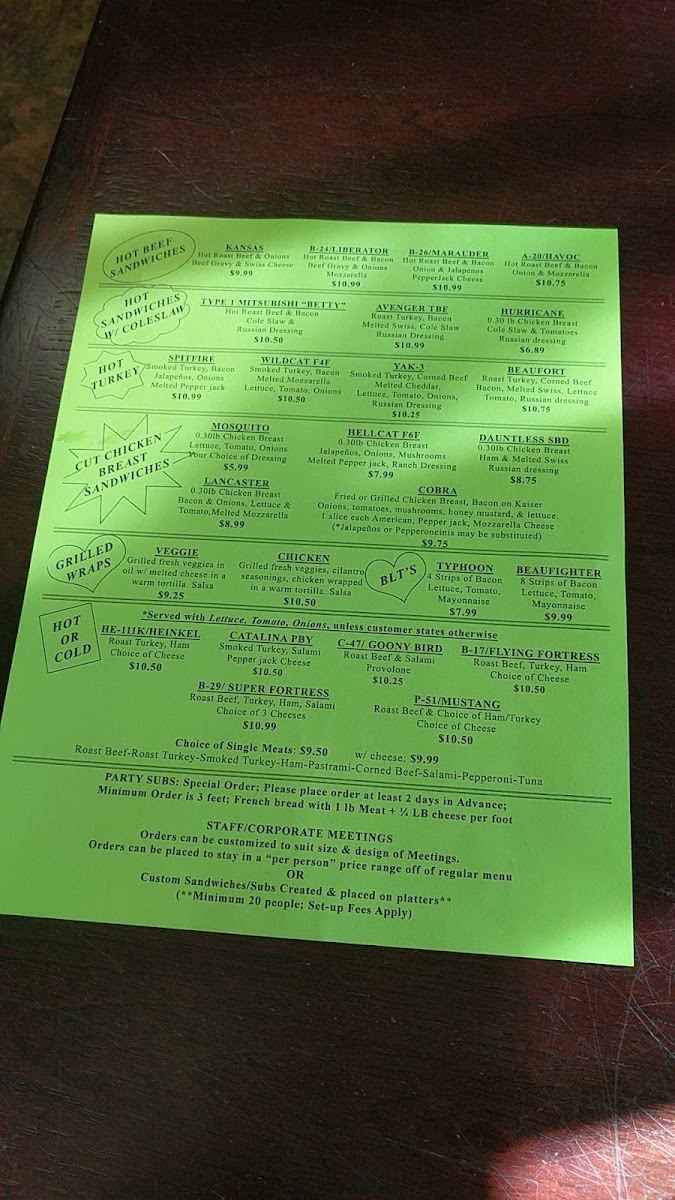 HOT BEEF
SANDWICHES
KANSAS
Hot Roast Beef & Onions
Beef Gravy & Swiss Cheese
$9.99
B-24/LIBERATOR
Hot Roast Beef & Bacon
Beef Gravy & Onions
Mozzarella
$10.99
B-26/MARAUDER
Hot Roast Beef & Bacon
Onion & Jalapenos
PepperJack Cheese
$10.99
A-20/HAVOC
Hot Roast Beef & Bacon
Onion & Mozzarella
$10.75
HOT
SANDWICHES
W/ COLESLAW
TYPE 1 MITSUBISHI “BETTY”
Hot Roast Beef & Bacon
Cole Slaw &
Russian Dressing
$10.50
AVENGER TBF
Roast Turkey, Bacon
Melted Swiss, Cole Slaw
Russian Dressing
$10.99
HURRICANE
0.30 lb Chicken Breast
Cole Slaw & Tomatoes
Russian dressing
$6.89
HOT
TURKEY
SPITFIRE
Smoked Turkey, Bacon
Jalapeños, Onions
Melted Pepper jack
$10.99
WILDCAT F4F
Smoked Turkey, Bacon
Melted Mozzarella
Lettuce, Tomato, Onions
$10.50
YAK-3
Smoked Turkey, Corned Beef
Melted Cheddar,
Lettuce, Tomato, Onions,
Russian Dressing
$10.25
BEAUFORT
Roast Turkey, Corned Beef
Bacon, Melted Swiss, Lettuce
Tomato, Russian dressing
$10.75
CUT CHICKEN
BREAST
SANDWICHES
MOSQUITO
0.30lb Chicken Breast
Lettuce, Tomato, Onions
Your Choice of Dressing
$5.99
HELLCAT F6F
0.30lb Chicken Breast
Jalapeños, Onions, Mushrooms
Melted Pepper jack, Ranch Dressing
$7.99
DAUNTLESS SBD
0.30lb Chicken Breast
Ham & Melted Swiss
Russian dressing
$8.75
LANCASTER
0.30lb Chicken Breast
Bacon & Onions, Lettuce &
Tomato,Melted Mozzarella
$8.99
COBRA
Fried or Grilled Chicken Breast, Bacon on Kaiser
Onions, tomatoes, mushrooms, honey mustard, & lettuce.
1 slice each American, Pepper jack, Mozzarella Cheese
(*Jalapeños or Pepperoneinis may be substituted)
$9.75
GRILLED
WRAPS
VEGGIE
Grilled fresh veggies in
oil w/ melted cheese in a
warm tortilla. Salsa
$9.25
CHICKEN
Grilled fresh veggies, cilantro
seasonings, chicken wrapped
in a warm tortilla. Salsa
$10.50
BLT'S
TYPHOON
4 Strips of Bacon
Lettuce, Tomato,
Mayonnaise
$7.99
BEAUFIGHTER
8 Strips of Bacon
Lettuce, Tomato,
Mayonnaise
$9.99
HOT
OR
COLD
*Served with Lettuce, Tomato, Onions, unless customer states otherwise
HE-111K/HEINKEL
Roast Turkey, Ham
Choice of Cheese
$10.50
CATALINA PBY
Smoked Turkey, Salami
Pepper jack Cheese
$10.50
C-47/ GOONY BIRD
Roast Beef & Salami
Provolone
$10.25
B-17/FLYING FORTRESS
Roast Beef, Turkey, Ham
Choice of Cheese
$10.50
B-29/ SUPER FORTRESS
Roast Beef, Turkey, Ham, Salami
Choice of 3 Cheeses
$10.99
P-51/MUSTANG
Roast Beef & Choice of Ham/Turkey
Choice of Cheese
$10.50
Choice of Single Meats: $9.50 w/ cheese: $9.99
Roast Beef-Roast Turkey-Smoked Turkey-Ham-Pastrami-Corned Beef-Salami-Pepperoni-Tuna
PARTY SUBS: Special Order; Please place order at least 2 days in Advance;
Minimum Order is 3 feet; French bread with 1 lb Meat + ¼ LB cheese per foot
STAFF/CORPORATE MEETINGS
Orders can be customized to suit size & design of Meetings.
Orders can be placed to stay in a “per person” price range off of regular menu
OR
Custom Sandwiches/Subs Created & placed on platters**
(**Minimum 20 people; Set-up Fees Apply)